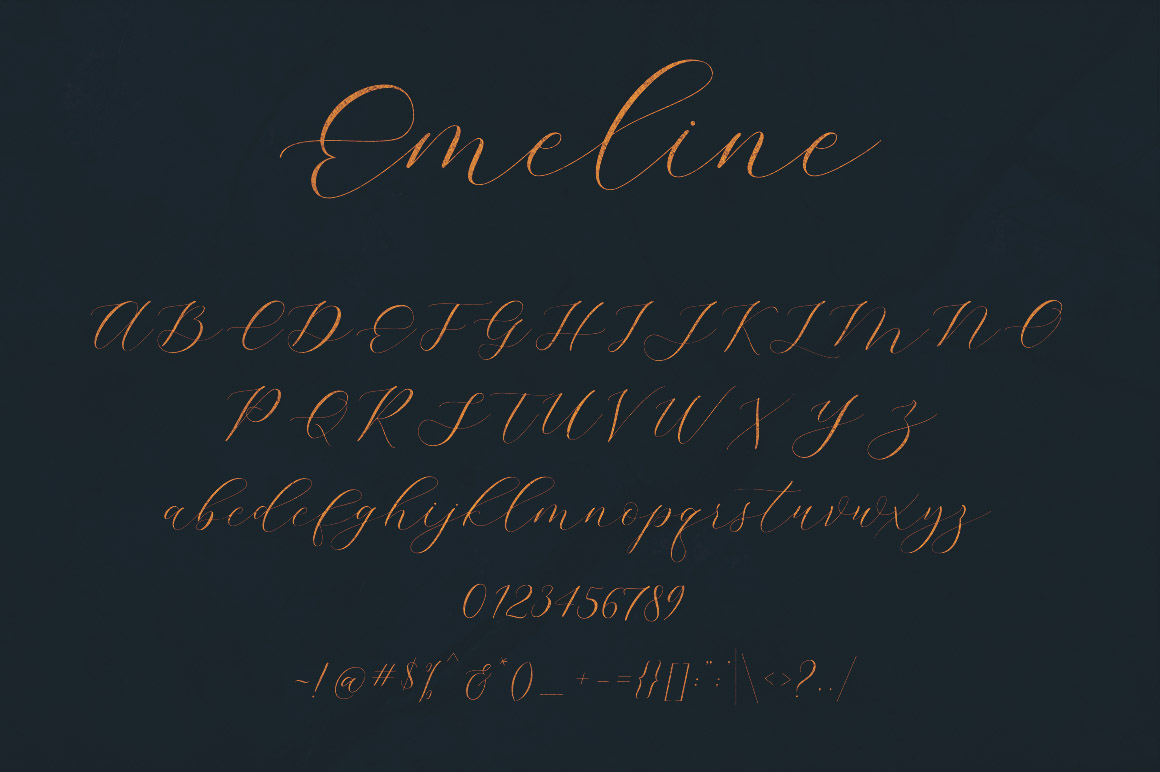 Emeline
A B C D E F G H I J K L M N O
P Q R S T U V W X Y Z
abcdefghijklmnopqrstuvwxyz
0123456789
~!@#$%^&*()_+-={}[]:";'|\<>?,./